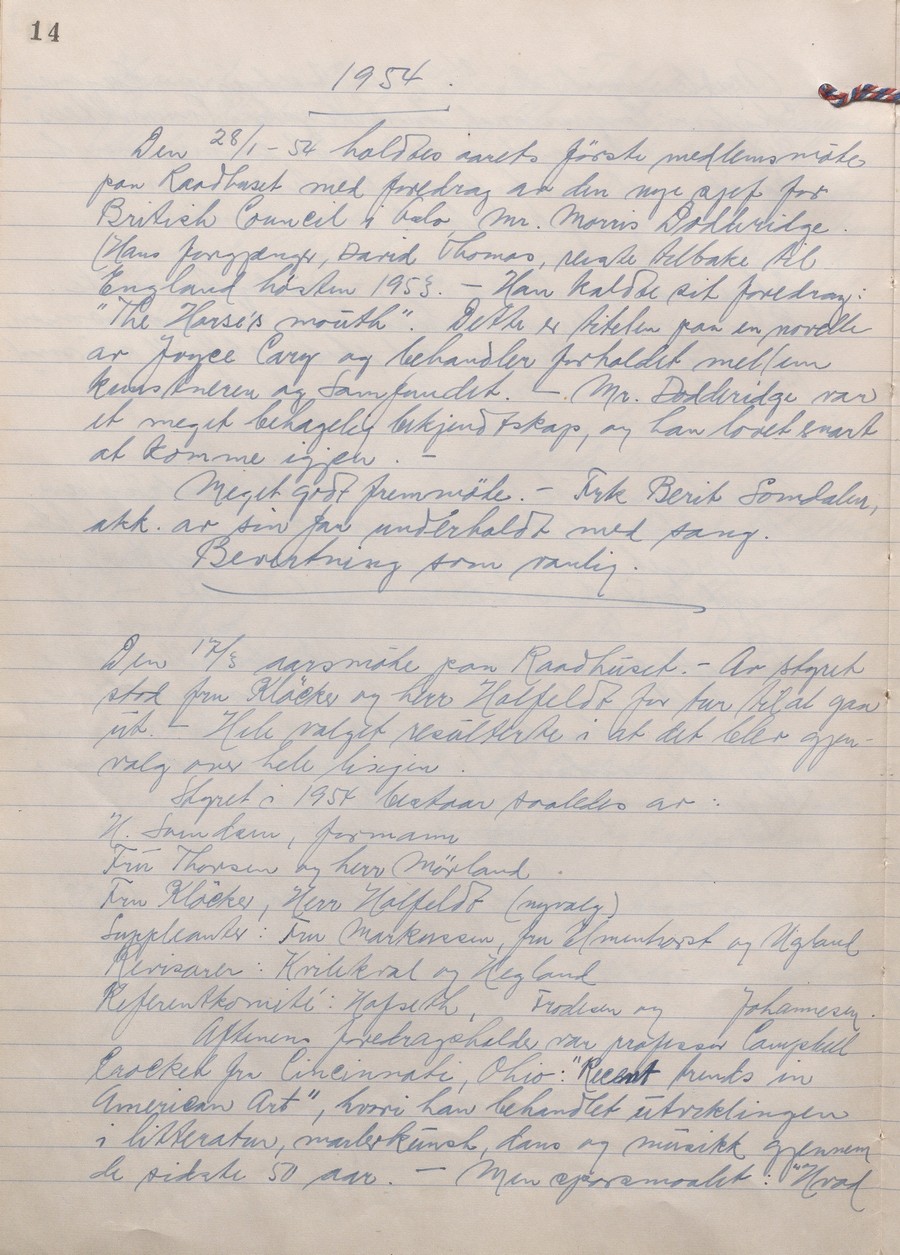 14
1954.
Den 28/1-54 holdtes aarets første medlemsmøte
paa Raadhuset med foredrag av den nye sjef for
British Council i Oslo, Mr. Morris Dodderidge.
(Hans forgjænger, David Thomas, reiste tilbake til
England høsten 1953. - Han kaldte sit foredrag:
"The Horse's mouth". Dette er titelen paa en novelle
av Joyce Cary og behandler forholdet mellem
kunstneren og Samfundet. - Mr. Dodderidge var
et meget behagelig bekjendtskap, og han lovet snart
at komme igjen. -
Meget godt fremmøte. - Frk Berit Somdalen,
akk. av sin far underholdt med sang.
Bevertning som vanlig.
Den 17/3 aarsmøte paa Raadhuset. - Av styret
stod fru Kløcker og herr Hatfeldt for tur til at gaa
ut. - Hele valget resulterte i at det blev gjen-
valg over hele linjen.
Styret i 1954 bestaar saaledes av:
H. Somdsen, formann
Fru Thorsen og herr Mørland.
Fru Kløcker, Herr Hatfeldt (nyvalg)
Suppleanter: Fru Markussen, fru Elmenhorst og Ugland
Revisorer: Kvilekval og Hegland
Referentkomité: Hofseth, Frodesen og Johannesen.
Aftenens foredragsholder var professor Campbell
Crocket fra Cincinnati, Ohio: "Recent trends in
American Art", hvori han behandlet utviklingen
i litteratur, malerkunst, dans og musikk gjennem
de sidste 50 aar. - Men spørsmaalet: "Hvad